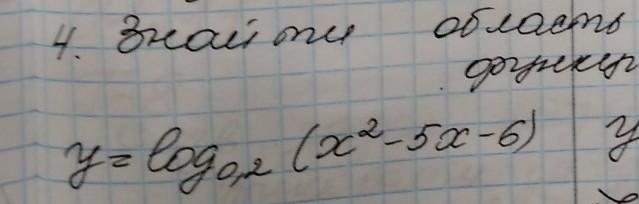 4. Знайти область
функц
y = log₀,₂ (x² - 5x - 6) y